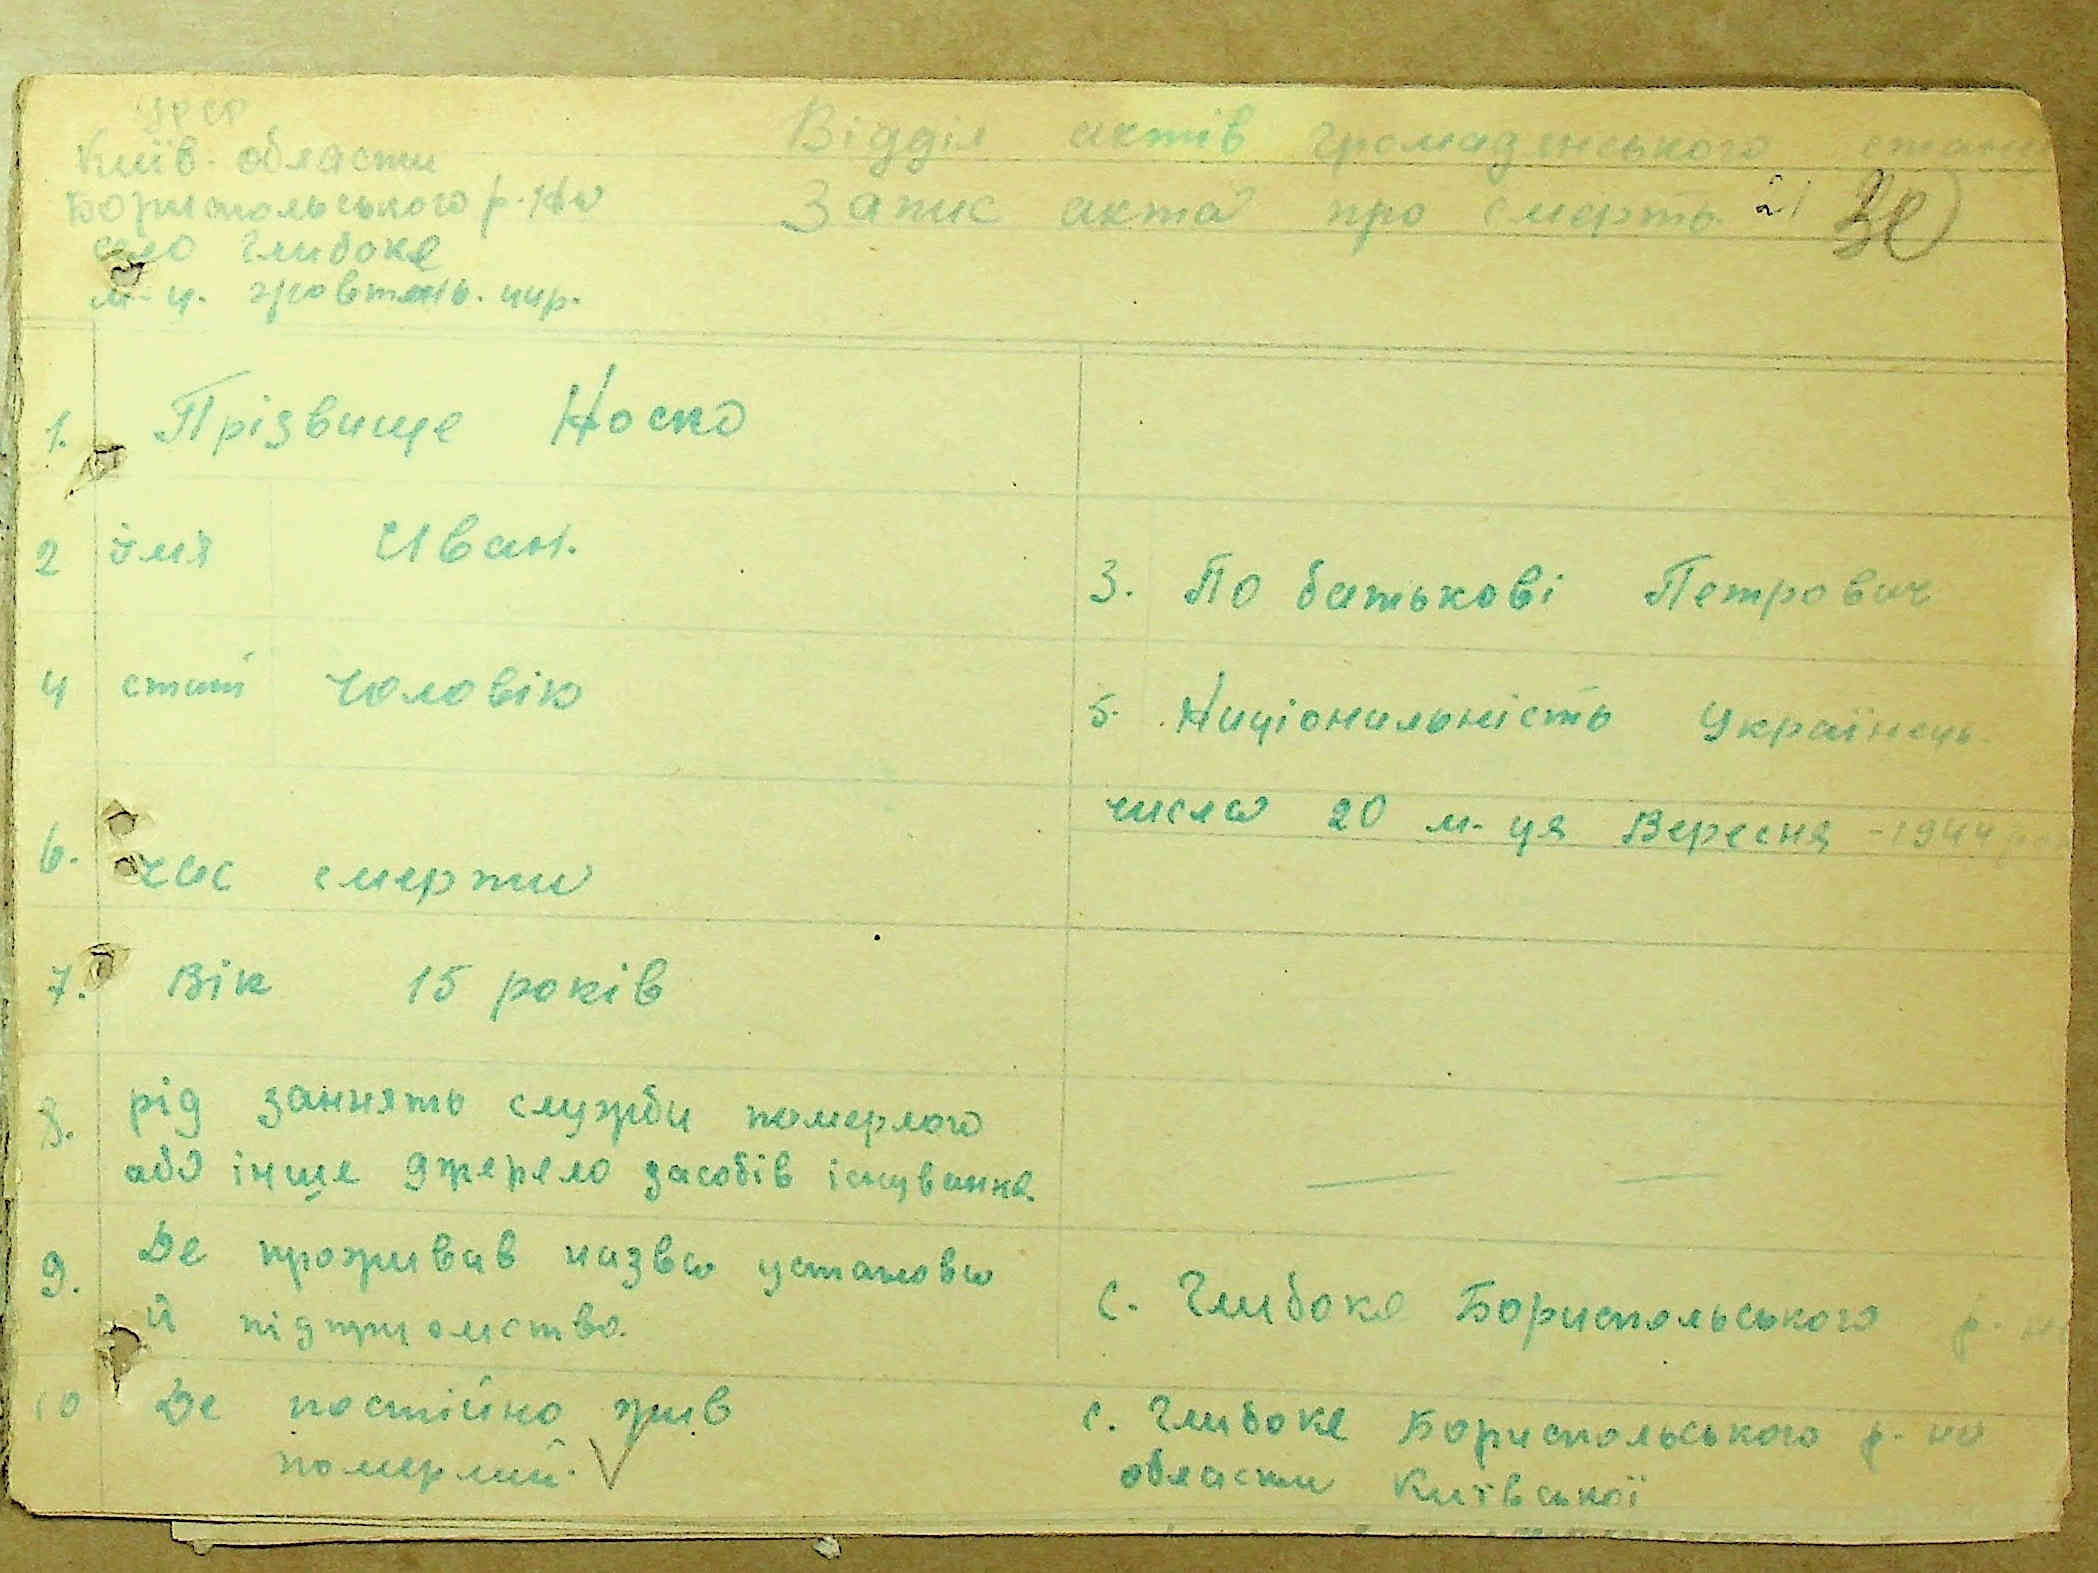 УРСР
Київ. области
Бориспольського р-на
село Глибоке
Відділ актів громадянського стану
Запис акта про смерть 21
1. Прізвище Носко
2 імя Иван.
3. По батькові Петрович
4 стат чоловік
5. Національність Українець
число 20 м-ця Вересня - 1944
6. час смерти
7. Вік 15 років
8. рід заннять служби померлого
або інше джерело засобів існування.
9. Де проживав назва установа
й підприємство.
с. Глибоке Бориспольського р-н
10 Де постійно жив
померлий.
с. Глибоке Бориспольського р-на
области Київської